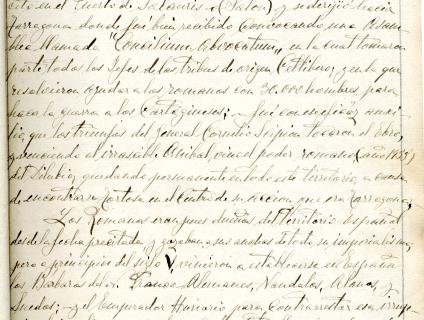 en el Puerto de Salauris (Salou) y se dirigió hacia
Tarragona donde fué bien recibido convocando una Asam-
blea llamada "Concilium Advocatum", en la cual tomaron
parte todos los Jefes de las tribus de origen Celtibero, y en la que
resolvieron ayudar a los romanos con 30.000 hombres, para
hacer la guerra a los Cartagineses; fué con auxi-
lio, que los triunfos del general Cornelio Scipion el Ebro,
y venciendo al irrascible Anibal, vino el poder romano, (año
del quedando permanente en todo este territorio, a causa
de encontrarse Tortosa en el Centro de su accion que era Tarragona;
Los Romanos eran pues dueños del territorio español
desde la fecha precitada y gozaban a sus anchas de todo su imperialismo,
pero a principios del siglo V, vinieron a establecerse en españa
los Bárbaros del or. Franco Alemanes, Vandalos, Alanos, y
Suedos; y el Emperador Honorio para contrarrestar esa irrup-